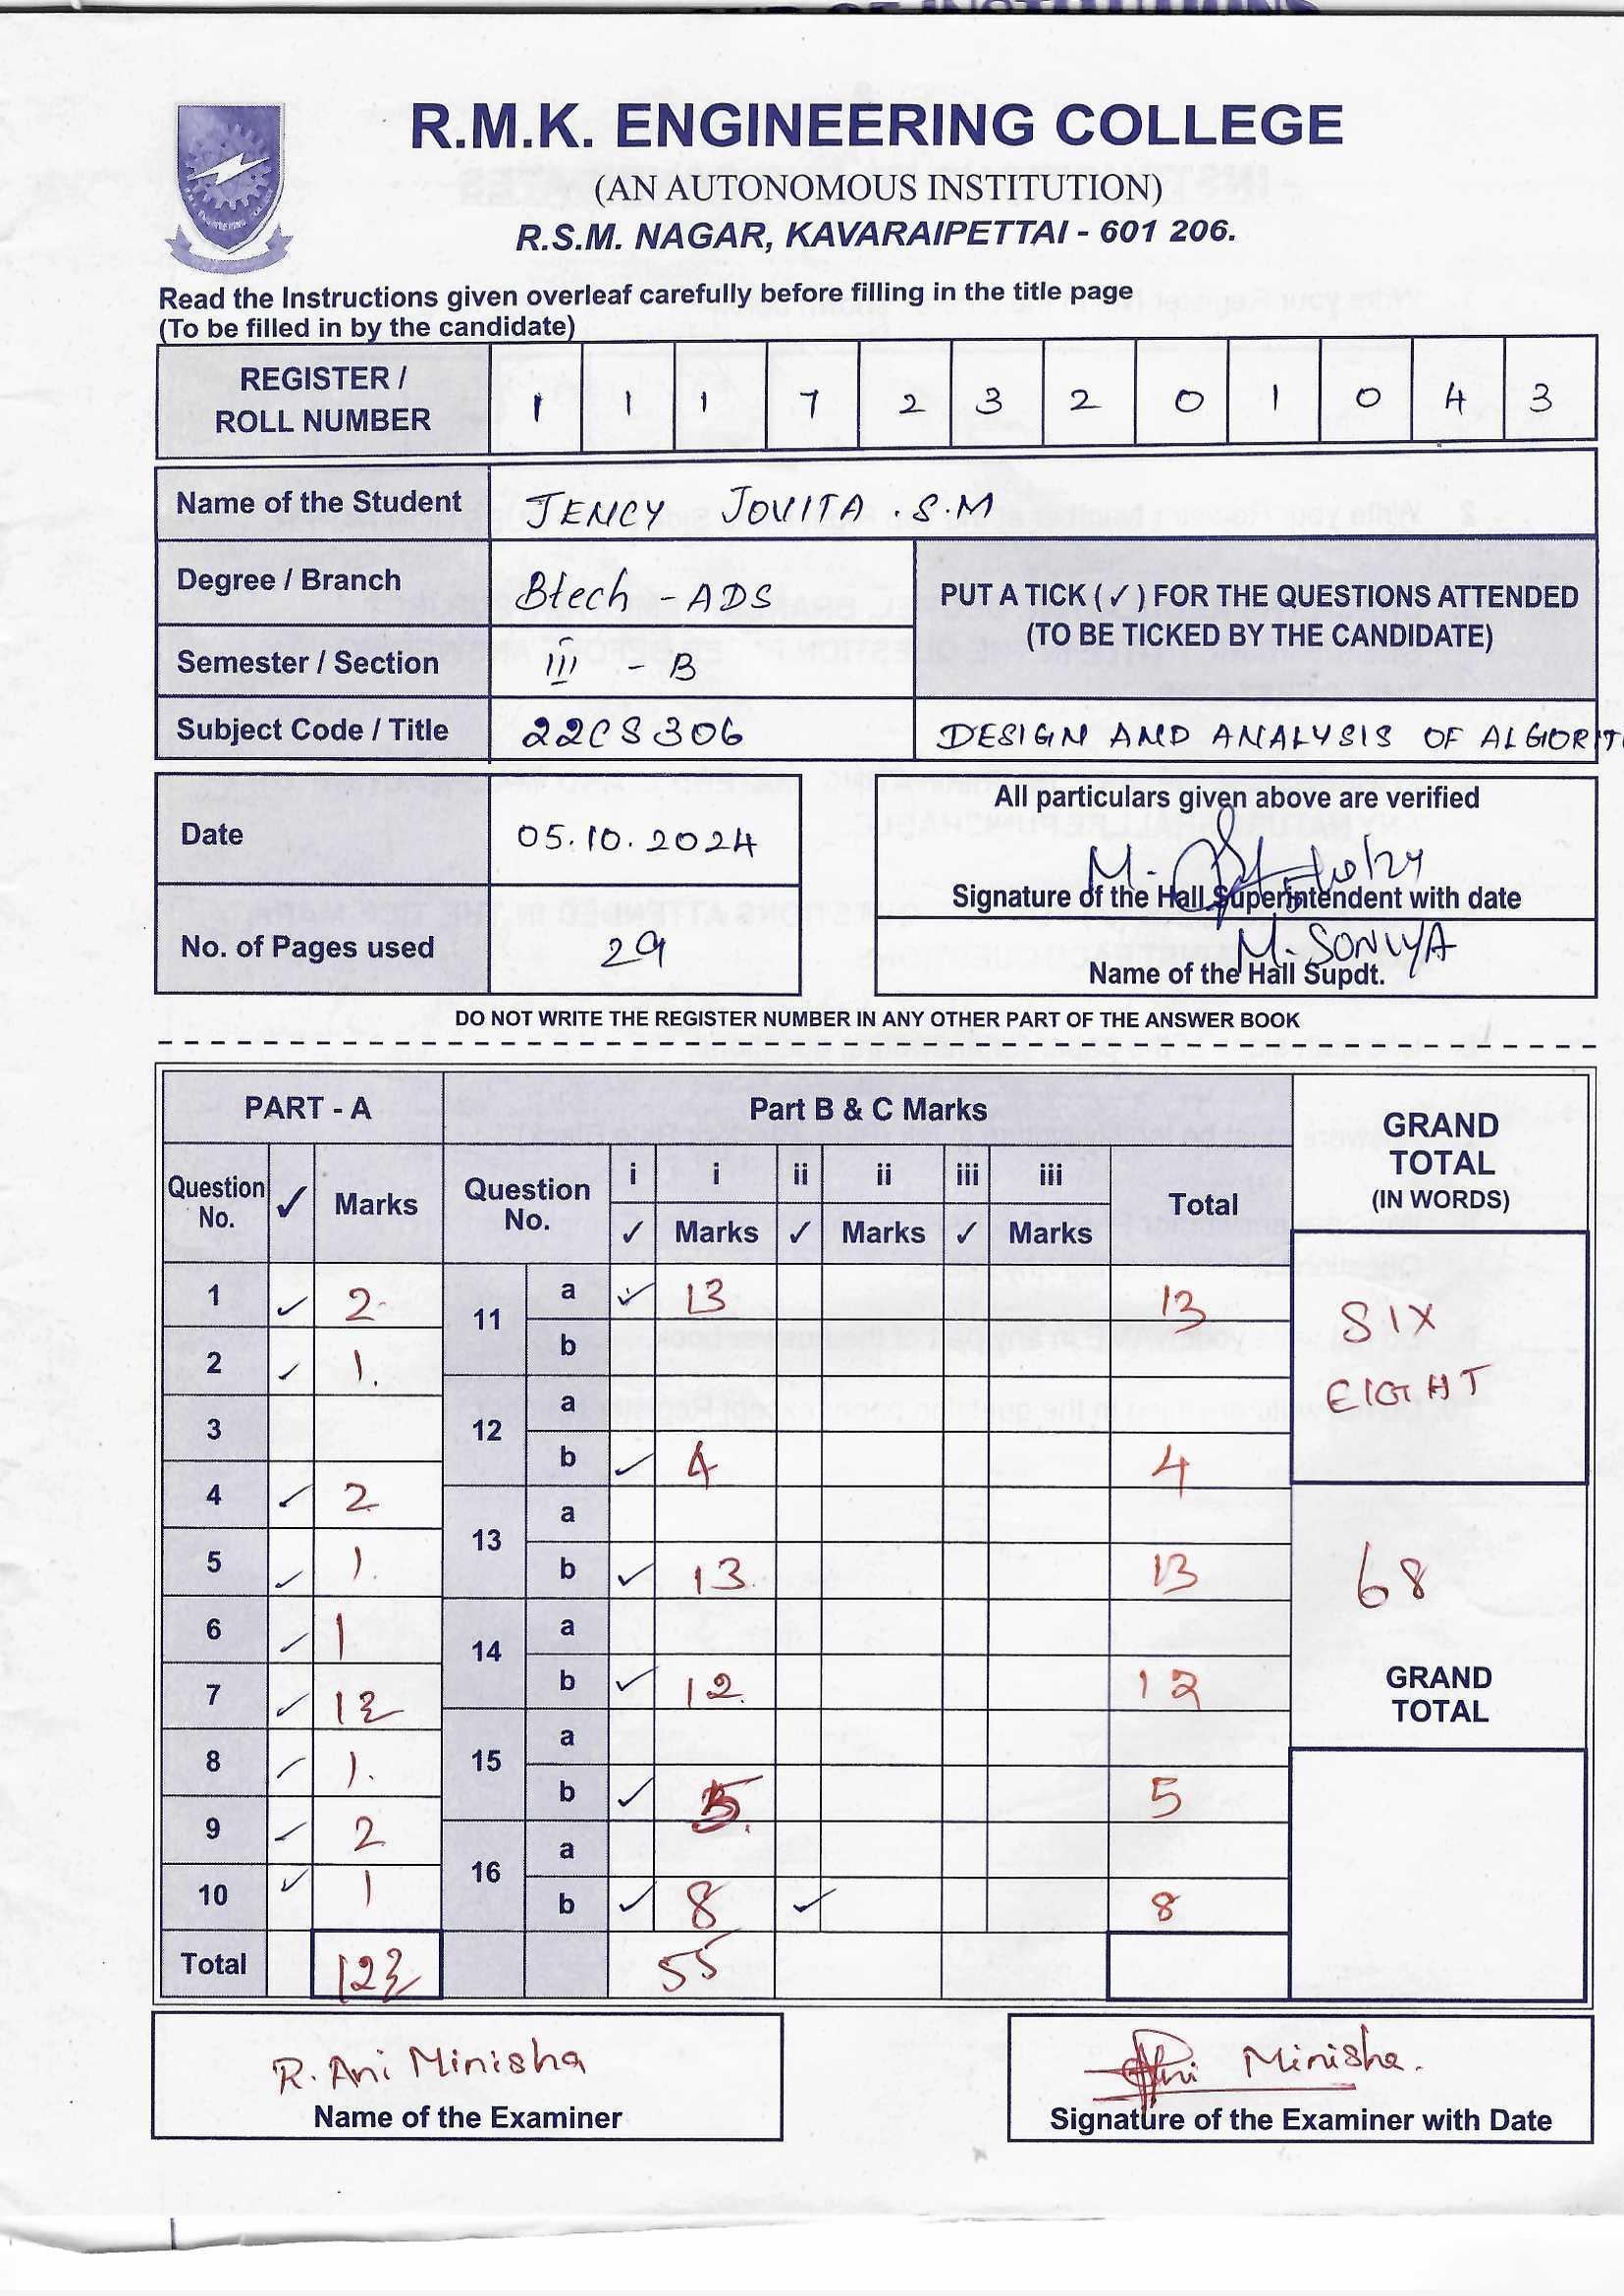 R.M.K. ENGINEERING COLLEGE
(AN AUTONOMOUS INSTITUTION)
R.S.M. NAGAR, KAVARAIPETTAI - 601 206.
Read the Instructions given overleaf carefully before filling in the title page
(To be filled in by the candidate)
REGISTER / ROLL NUMBER 1 1 1 7 2 3 2 0 1 0 4 3
Name of the Student JENCY JOVITA .S.M
Degree / Branch Btech - ADS
PUT A TICK (✓) FOR THE QUESTIONS ATTENDED
(TO BE TICKED BY THE CANDIDATE)
Semester / Section III - B
Subject Code / Title 22CS306 DESIGN AND ANALYSIS OF ALGORIT
Date 05.10.2024
All particulars given above are verified
Signature of the Hall Superintendent with date
No. of Pages used 29
M. SONIYA
Name of the Hall Supdt.
DO NOT WRITE THE REGISTER NUMBER IN ANY OTHER PART OF THE ANSWER BOOK
PART - A Part B & C Marks GRAND TOTAL (IN WORDS)
Question No. ✓ Marks Question No. i i ii ii iii iii Total
✓ Marks ✓ Marks ✓ Marks
1 ✓ 2 11 a ✓ 13 13
2 ✓ 1. b
SIX
EIGHT
3 12 a
4 ✓ 2 b ✓ 4 4
5 ✓ 1. 13 a
b ✓ 13 13
68
6 ✓ 1 14 a
7 ✓ b ✓ 12 12
GRAND TOTAL
8 ✓ 1. 15 a
9 ✓ 2 b ✓ 5 5
10 ✓ 1 16 a
b ✓ 8 ✓ 8
Total 55
R. Ani Minisha
Name of the Examiner
Ani Minisha.
Signature of the Examiner with Date